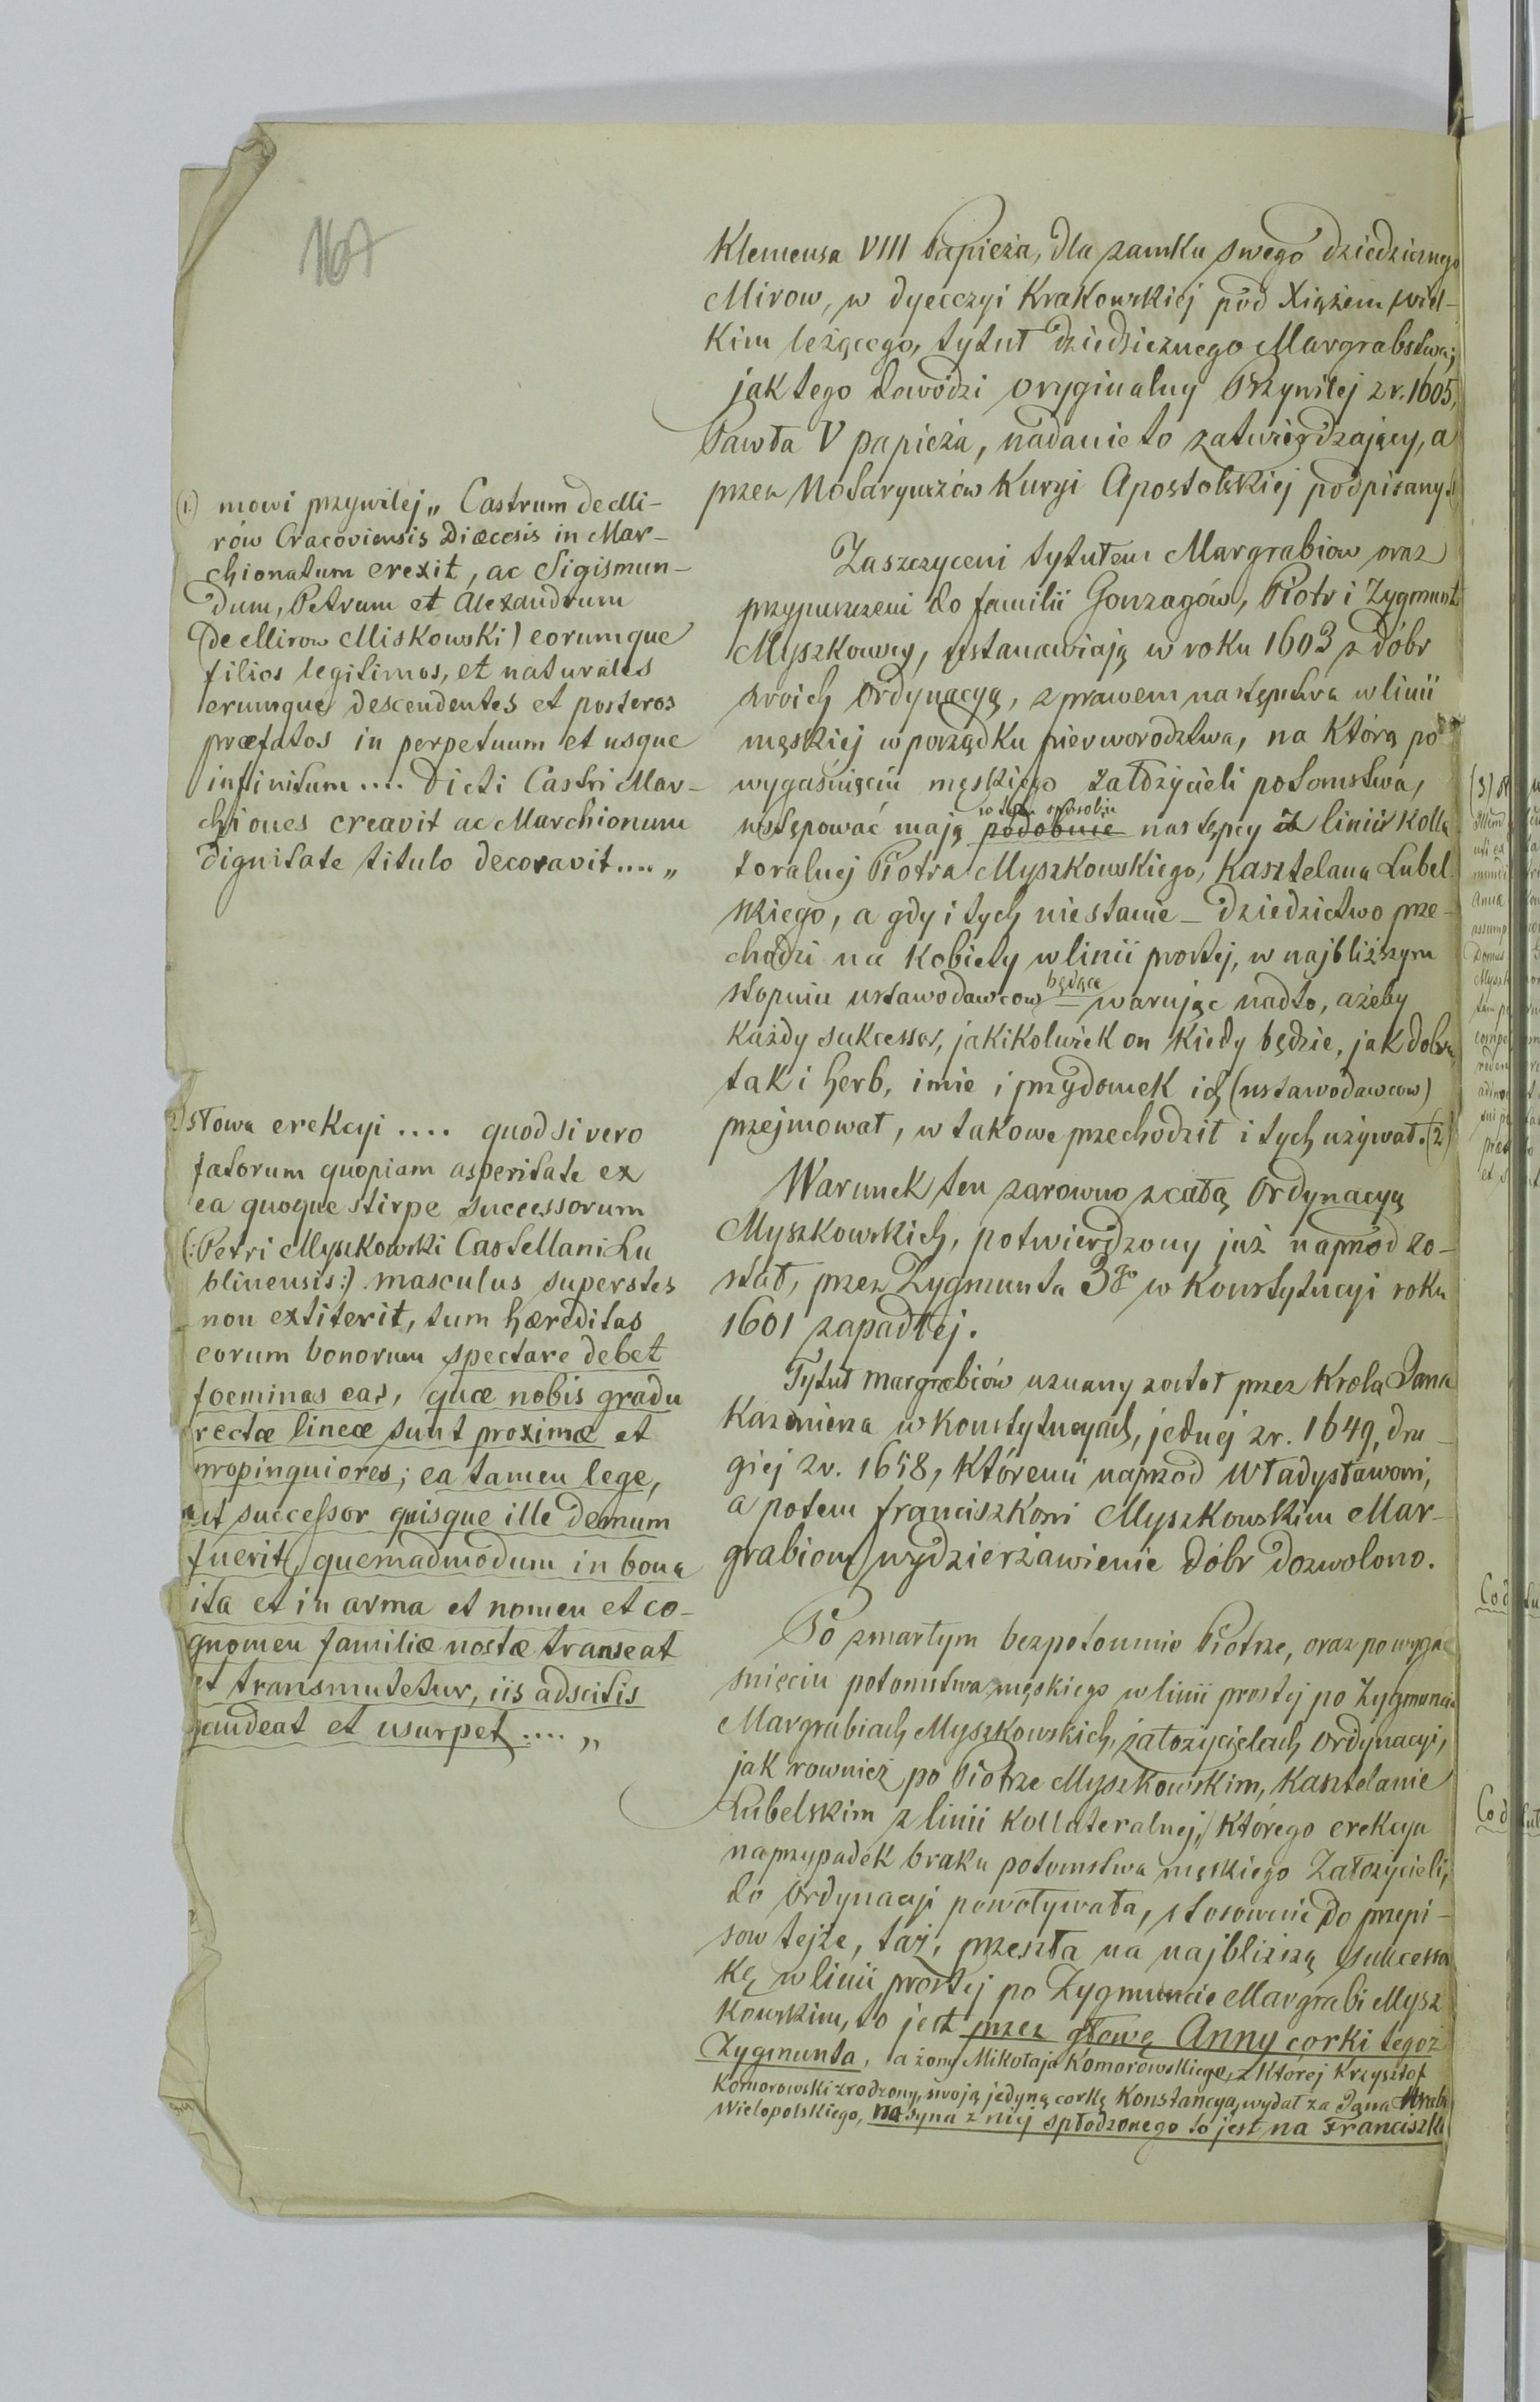 167
Klemensa VIII Papieża, dla zamku swego dziedzicznego
Mirow, w dyecezyi Krakowskiej pod Xiążem Wiel-
kim leżącego, tytuł dziedzicznego Margrabstwa;
jak tego dowodzi oryginalny Przywilej z r. 1605,
Pawła V papieża, nadanie to zatwierdzający, a
przez Notaryuszów Kuryi Apostolskiej podpisany.
Zaszczyceni tytułem Margrabiow oraz
przypuszczeni do familii Gonzagów, Piotr i Zygmunt
Myszkowscy, ustanawiają w roku 1603 z dóbr
swoich Ordynacyą, z prawem następstwa w linii
męskiej w porządku pierworodztwa, na którą po
wygaśnięciu męskiego załozycieli potomstwa,
w tymże sposobie
wstępować mają podobnie następcy z linii kolla
toralnej Piotra Myszkowskiego, Kasztelana Lubel
skiego, a gdy i tych niestanie – dziedzictwo prze-
chodzi na kobiety w linii prostej, w najbliższym
stopniu ustawodawcow będące – warując nadto, ażeby
każdy sukcessor, jakikolwiek on kiedy będzie, jak dobra,
tak i herb, imie i przydomek ich (ustawodawcow)
przejmował, w takowe przechodził i tych używał. (2)
Warunek ten zarowno z całą Ordynacyą
Myszkowskich, potwierdzony już naprzod zo-
stał, przez Zygmunta 3go w Konstytucyi roku
1601 zapadłej.
Tytuł margrabiów uznany został przez Krola Jana
Kazimierza w Konstytucyach, jednej z r. 1649, dru-
giej z r. 1658, któremi naprzod Władysławowi,
a potem Franciszkowi Myszkowskim Mar-
grabiom wydzierżawienie dóbr dozwolono.
Po zmarłym bezpotomnie Piotrze, oraz po wyga-
śnięciu potomstwa męskiego w linii prostej po Zygmuncie
Margrabiach Myszkowskich, załozycielach Ordynacyi,
jak rownież po Piotrze Myszkowskim, Kasztelanie
Lubelskim z linii Kollateralnej, którego erekcya
naprzypadek braku potomstwa męskiego Założycieli,
do Ordynacyi powoływała, stosownie do przepi-
sow tejże, taż, przeszła na najbliższą sukcesso
kę w linii prostej po Zygmuncie Margrabi Mysz
kowskim, to jest przez głowę Anny corki tegoż
Zygmunta, a żony Mikołaja Komorowskiego, z której Krzysztof
Komorowski zrodzony, swoją jedyną corkę Konstancyą wydał za Jana Hrabi
Wielopolskiego, na syna z niej spłodzonego to jest na Franciszka
(1.) mowi przywilej „ Castrum de Mi-
rów Cracoviensis Diæcesis in Mar-
chionatum erexit, ac Sigismun-
dum, Petrum et Alexandrum
(de Mirow Miskowski) eorumque
filios legitimos, et naturales
erumque descendentes et posteros
præfatos in perpetuum et usque
infinitum .... Dicti Castri Mar-
chiones creavit ac Marchionum
dignitate titulo decoravit.... „
2) słowa erekcyi .... quod si vero
fatorum quopiam asperitate ex
ea quoque stirpe successorum
(:Petri Myszkowski Castellani Lu
blinensis:) masculus superstes
non extiterit, tum hæreditas
eorum bonorum spectare debet
foeminas eas, quæ nobis gradu
rectæ lineæ sunt proximæ et
propinquiores; ea tamen lege,
ut successor quisque ille demum
fuerit, quemadmodum in bona
ita et in arma et nomen et co-
gnomen familiæ nostæ transeat
et transmutetur, iis adscitis
gaudeat et usurpet .... „